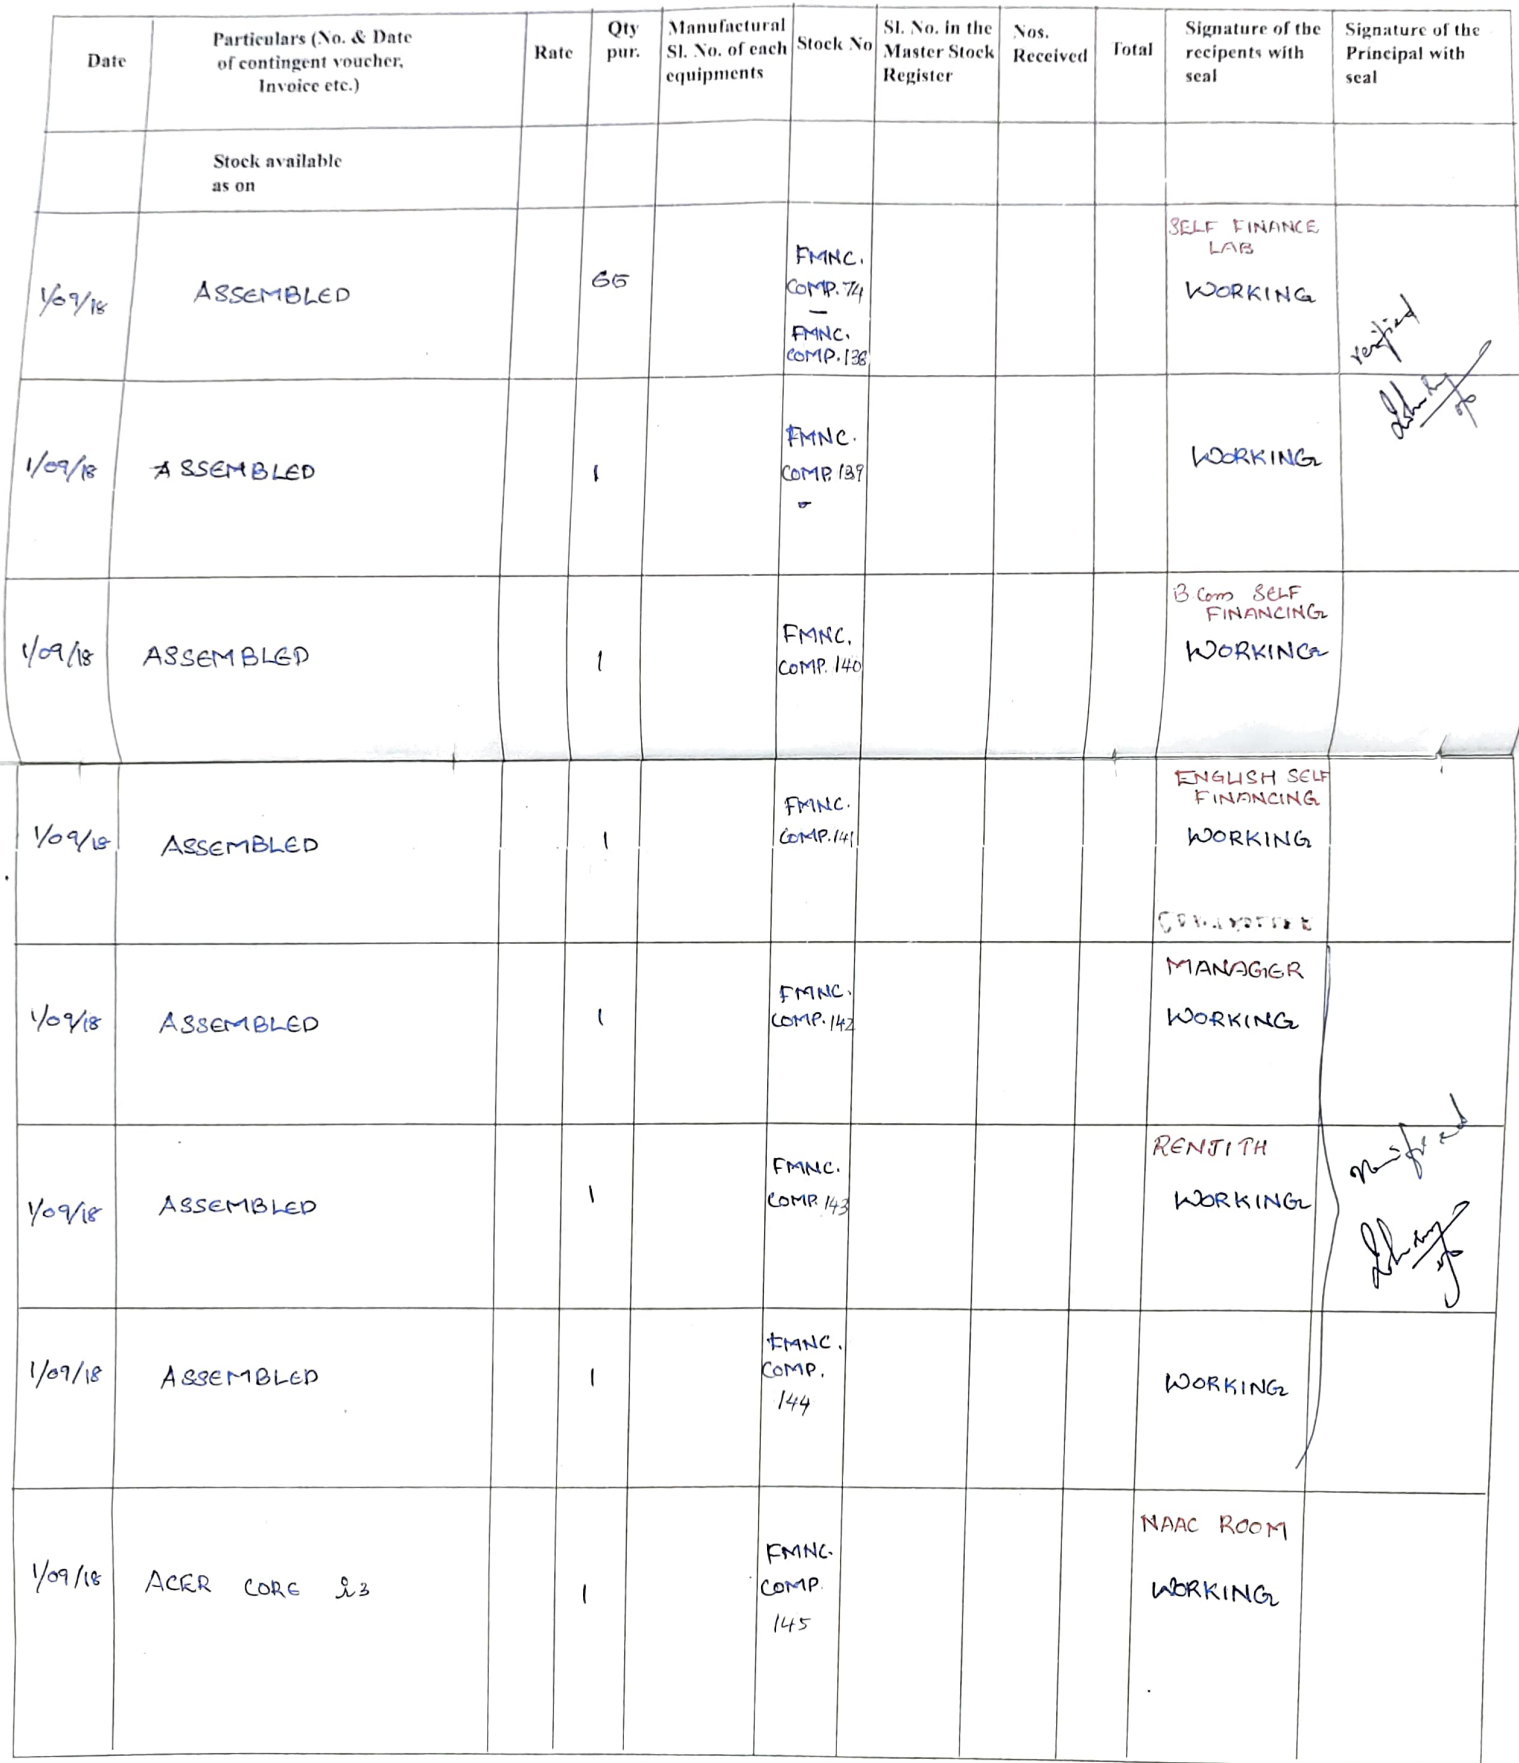 Date
Particulars (No. & Date
of contingent voucher,
Invoice etc.)
Rate
Qty
pur.
Manufactural
Sl. No. of each
equipments
Stock No
Sl. No. in the
Master Stock
Register
Nos.
Received
Total
Signature of the
recipents with
seal
Signature of the
Principal with
seal
Stock available
as on
1/09/18
ASSEMBLED
65
FMNC.
COMP.74
–
FMNC.
COMP.138
SELF FINANCE
LAB
WORKING
verified
1/09/18
ASSEMBLED
1
FMNC.
COMP.139
WORKING
1/09/18
ASSEMBLED
1
FMNC.
COMP.140
B.Com SELF
FINANCING
WORKING
1/09/18
ASSEMBLED
1
FMNC.
COMP.141
ENGLISH SELF
FINANCING
WORKING
1/09/18
ASSEMBLED
1
FMNC.
COMP.142
MANAGER
WORKING
1/09/18
ASSEMBLED
1
FMNC.
COMP.143
RENJITH
WORKING
verified
1/09/18
ASSEMBLED
1
FMNC.
COMP.
144
WORKING
1/09/18
ACER CORE i3
1
FMNC.
COMP.
145
NAAC ROOM
WORKING